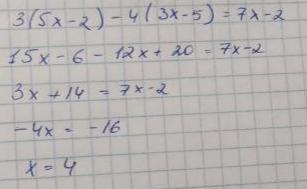 3(5x-2)-4(3x-5)=7x-2
15x-6-12x+20=7x-2
3x+14=7x-2
-4x=-16
x=4